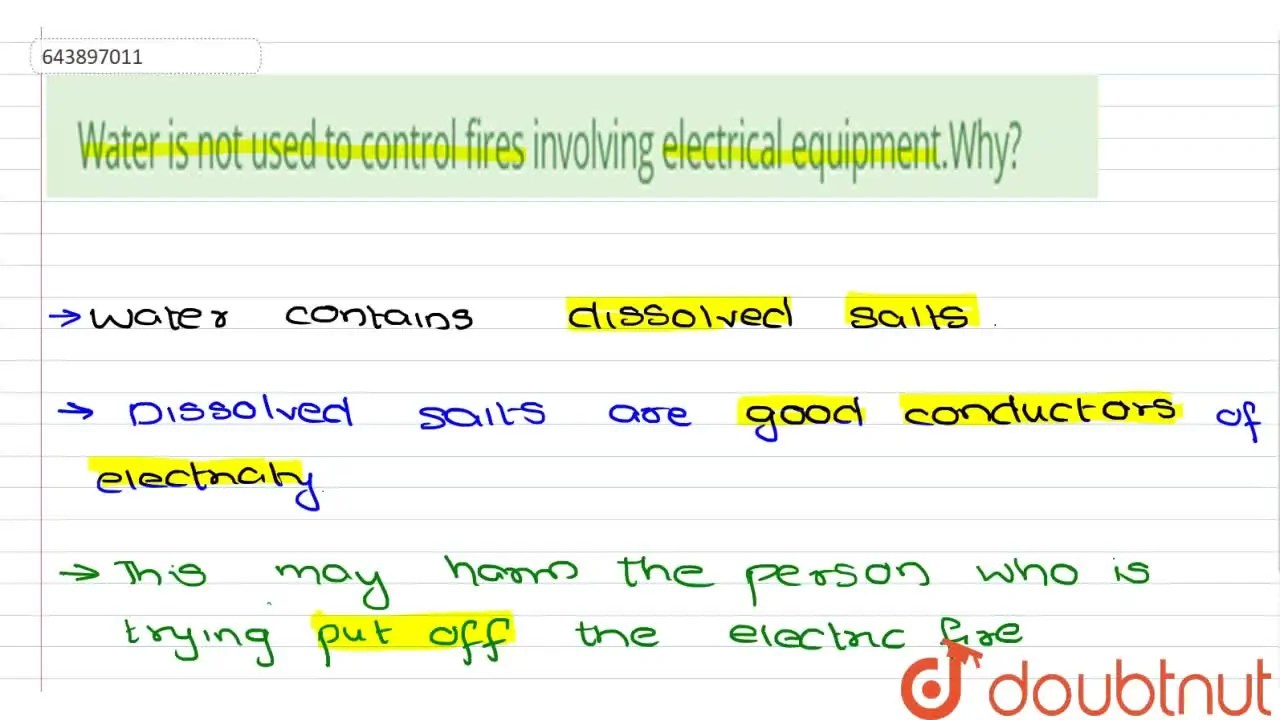 643897011
Water is not used to control fires involving electrical equipment.Why?
→ Water contains dissolved salts.
→ Dissolved salts are good conductors of
electricity.
→ This may harm the person who is
trying put off the electric fire
doubtnut